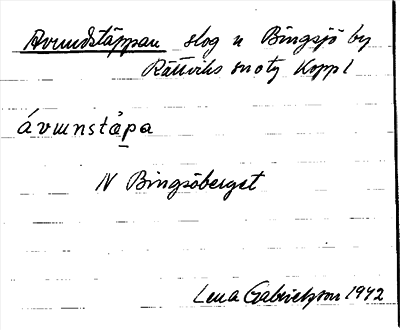 Avundstäppan slog n Bingsjö by
Rättviks sn Koppl
ávunstàpa
N Bingsöberget
Lena Gabrielsson 1942